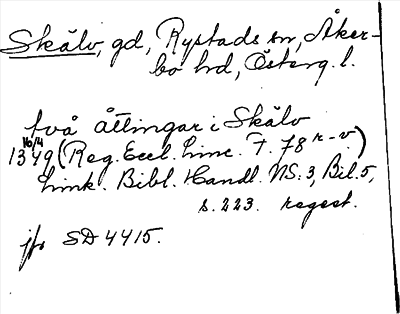 Skälv, gd, Rystads sn, Åker-
bo hd, Österg. l.
två ättingar i Skälv
16/4
1349 (Reg. Eccl. Linc. F. 78 r-v.)
Link. Bibl. Handl. NS. 3, Bil. 5,
s. 223. regest.
jfr SD 4415.